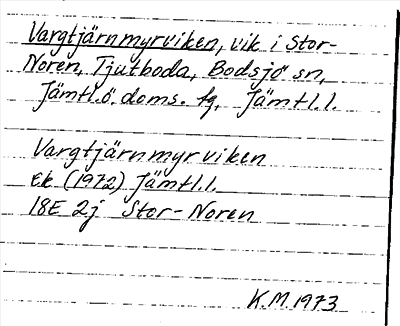 Vargtjärnmyrviken, vik i Stor-
Noren, Tjutboda, Bodsjö sn,
Jämtl. ö. doms. fg, Jämtl. l.
Vargtjärnmyrviken
Ek. (1972) Jämtl. l.
18E 2j Stor-Noren
K.M. 1973